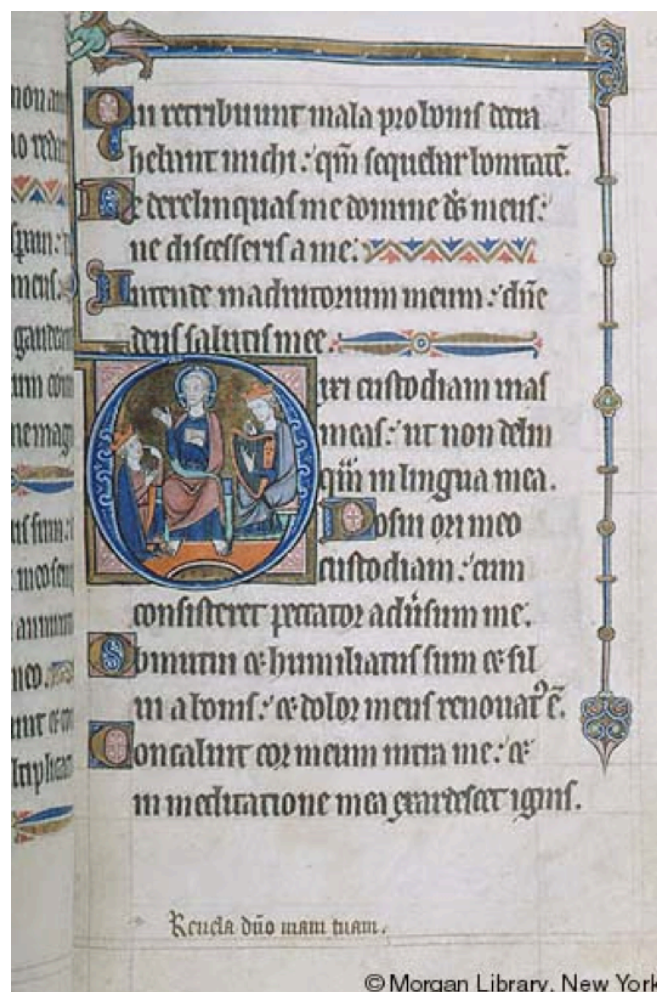 Qui retribuunt mala pro bonis detra
hebant michi: qm sequebar bonitatē.
Ne derelinquas me domine ds meus:
ne discesseris a me.
Intende in adiutorium meum: dne
deus salutis mee.
Dixi custodiam uias
meas: ut non delin
quā in lingua mea.
Posui ori meo
custodiam: cum
consisteret peccator aduersum me.
Obmutui & humiliatus sum & sil
ui a bonis: & dolor meus renouat᷒ ē.
Concaluit cor meum intra me: &
in meditatione mea exardescet ignis.
Reuela dño uiam tuam.
© Morgan Library, New York